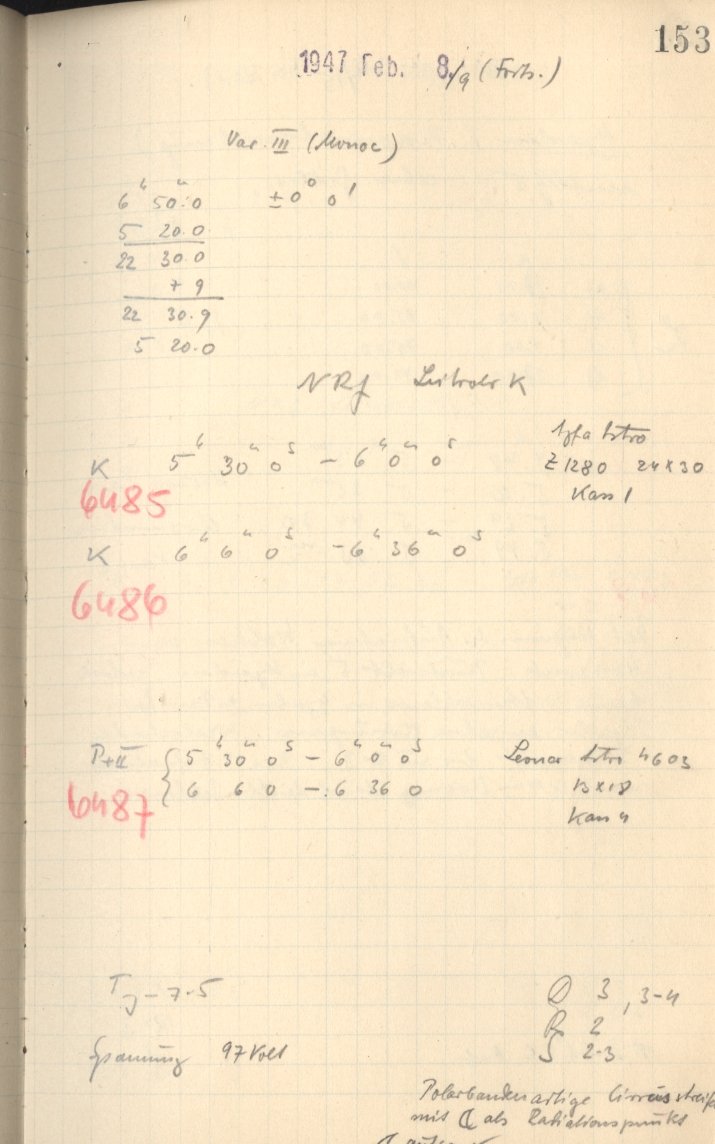 153
1947 Feb. 8./9 (Forts.)
Var. III (Monoc)
6 h 50.0 m ± 0° 0'
5 20.0
22 30.0
+ 9
22 30.9
5 20.0
NRf Leitrohr K
K 5h 30m 0s – 6h 0m 0s Agfa Astro
Z 1280 24x30
Kass 1
6485
K 6h 6m 0s – 6h 36m 0s
6486
P+II { 5h 30m 0s – 6h 0m 0s Leonar Astro 4603
6 6 0 – 6 36 0 13x18
6487
Kass 4
T – 7.5
3, 3-4
R 2
Spannung 97 Volt
S 2-3
Polarbandenartige Cirrusstreifen
mit ☾ als Radiationspunkt